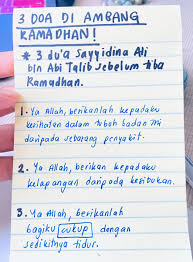 3 DOA DI AMBANG
RAMADHAN!
* 3 du'a Sayyidina Ali
bin Abi Talib sebelum tiba
Ramadhan.
1. Ya Allah, berikanlah kepadaku
kerihatan dalam tubuh badan ini
daripada sebarang penyakit.
2. Ya Allah, berikan kepadaku
kelapangan daripada kesibukan.
3. Ya Allah, berikanlah
bagiku cukup dengan
sedikitnya tidur.